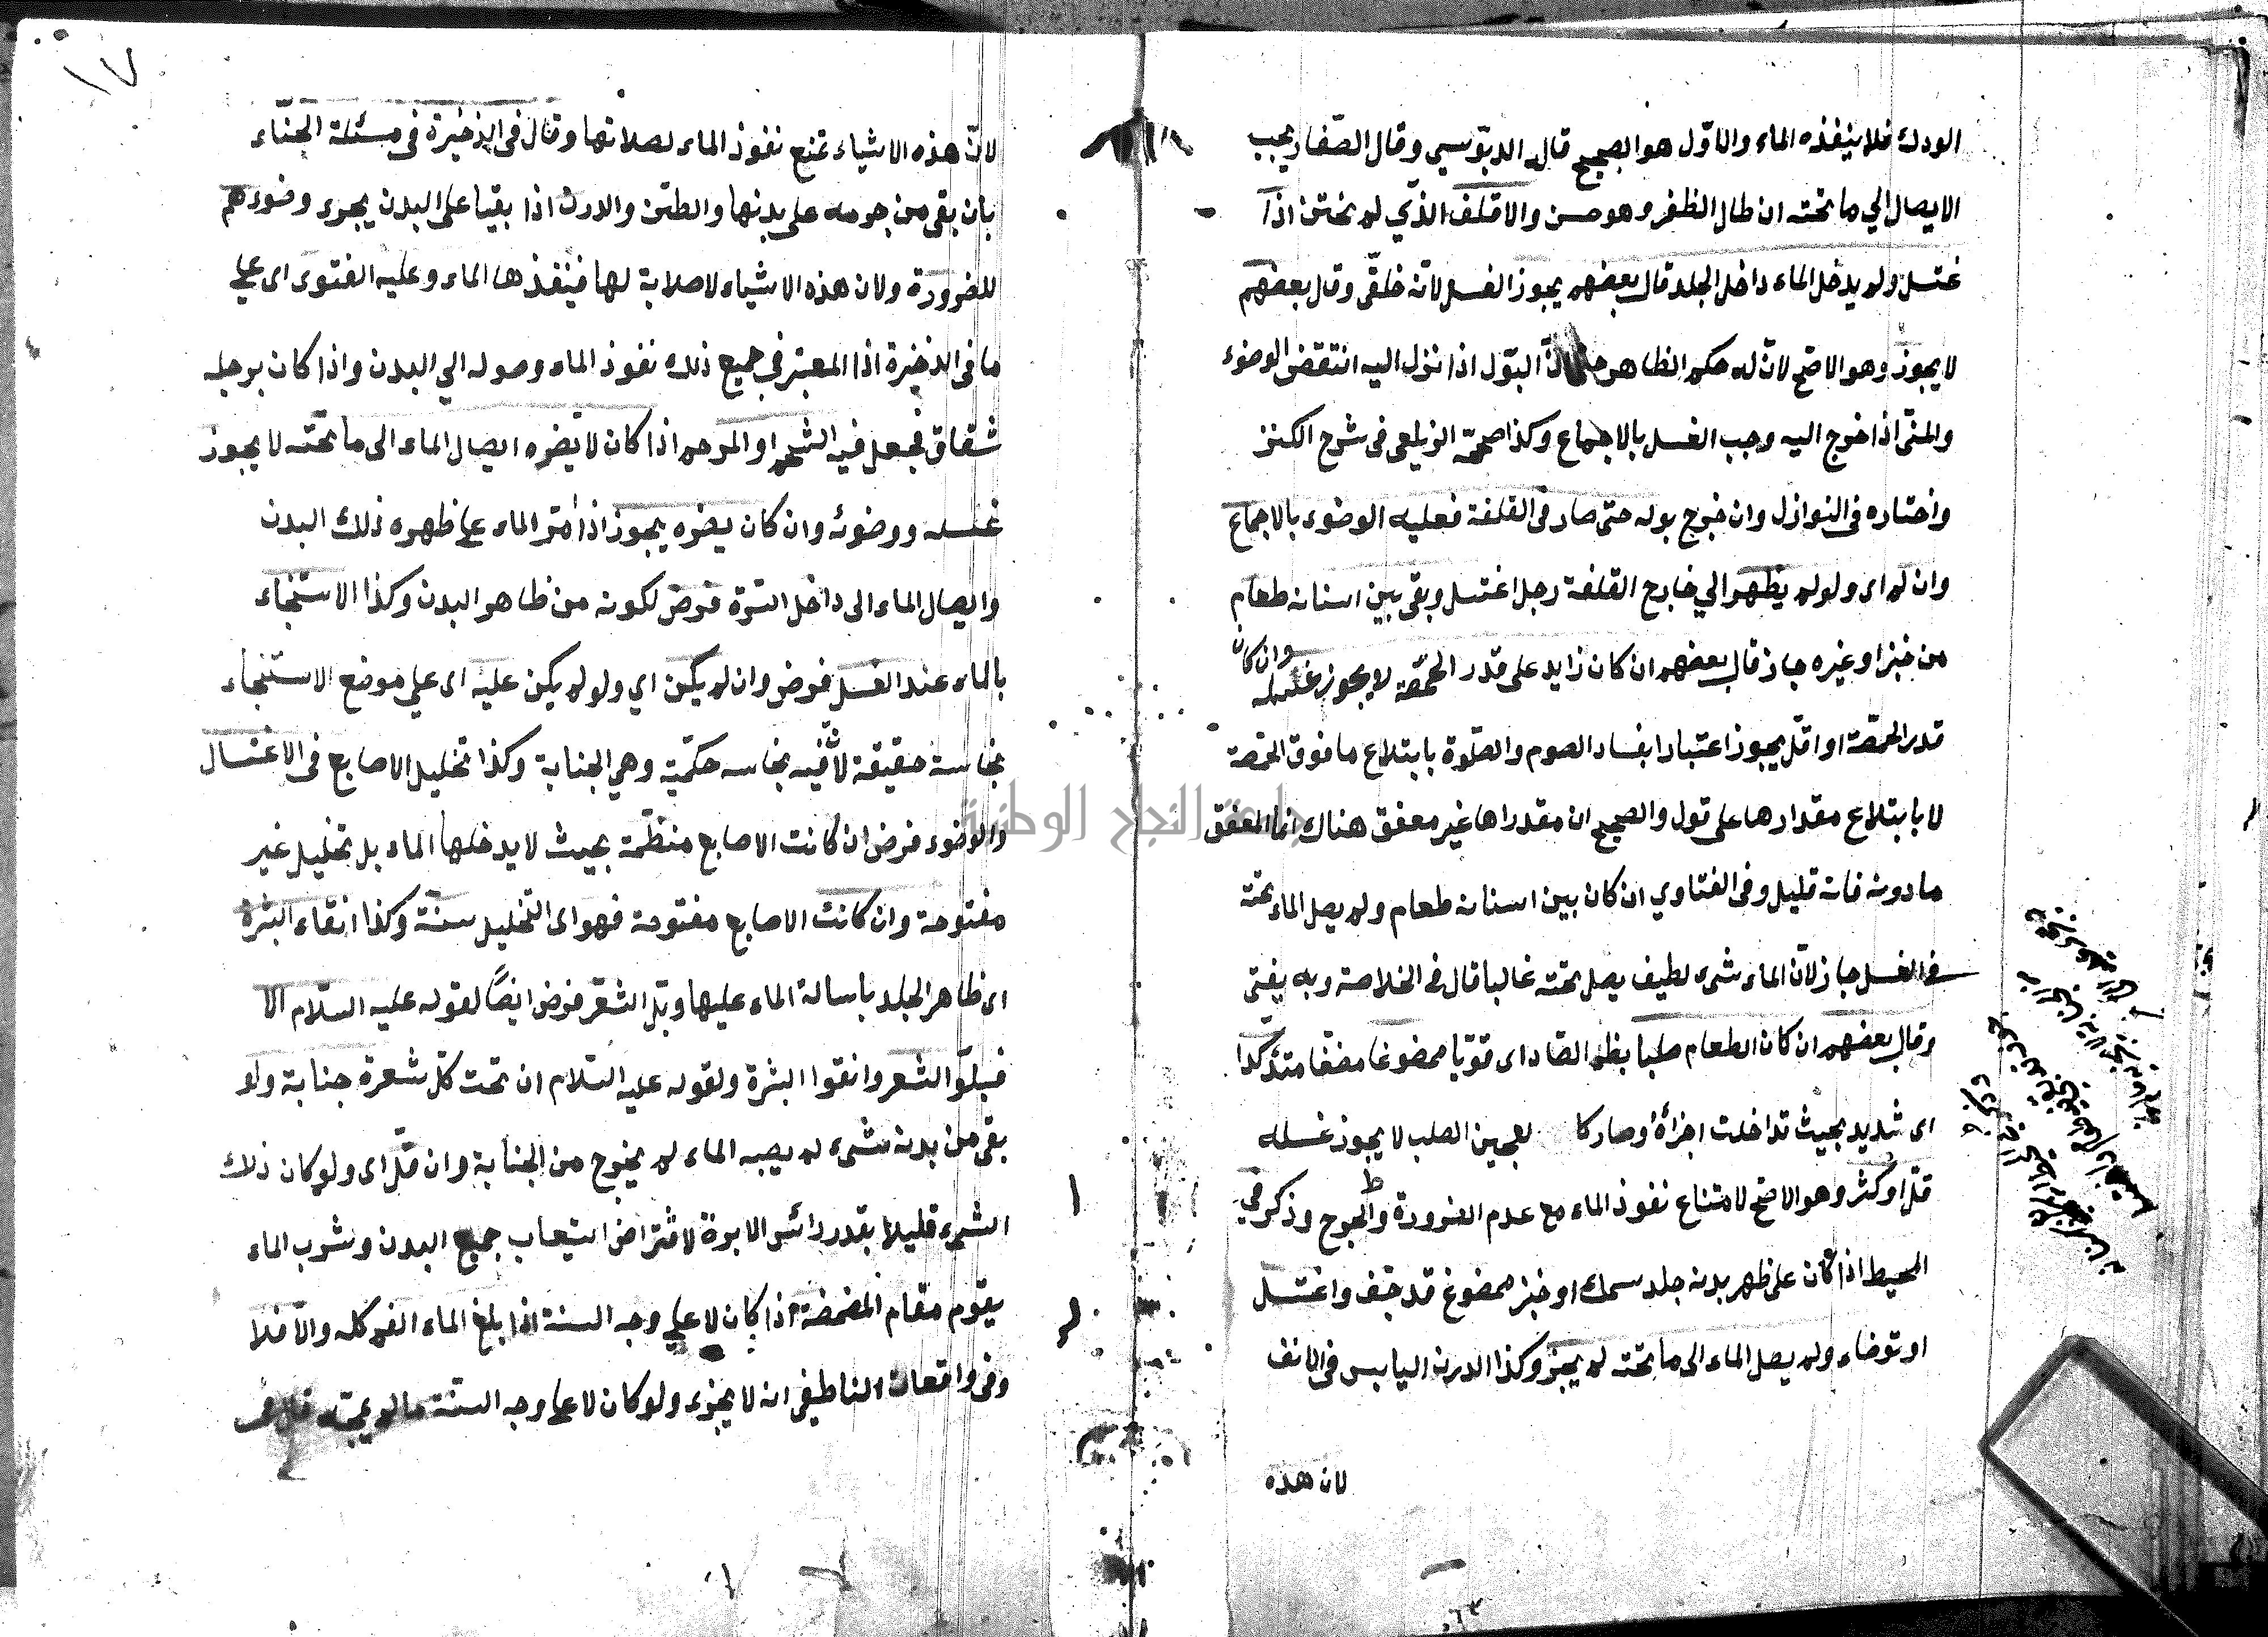 الودك فلا ينفذه الماء والاوّل هو الصحيح قاله الدبّوسي وقال الصّفار يجب
الايصال الي ما تحته ان طال الظفر وهو حسن والاقلف الذّي لم يختتن اذا
غتسل ولم يدخل الماء داخل الجلد قال بعضهم يجوز الغسل لانّه خلقّي وقال بعضهم
لا يجوز وهو الاصّح لانّ له حكم الظاهر حتى انّ البّول اذا نزل اليه انتقض الوضوء
والمنّى اذا خرج اليه وجب الغسل بالاجماع وكذا صحّحه الزيلعى فى شرح الكنز
واختاره فى النوازل وان خرج بوله حتى صار فى القلفة فعليه الوضوء بالاجماع
وان لم اى ولو لم يظهر الي خارج القلفة رجل اغتسل وبقى بين اسنانه طعام
من خبز او غيره جاز قال بعضهم ان كان زايد على قدر الحمّصة لا يجوز غسله وان كان
قدر الحمّصة او اقلّ يجوز اعتبارا بفساد الصوم والصّلوة بابتلاع ما فوق الحمّصة
لا بابتلاع مقدارها على قول والصحيح ان مقدراها غير معفق هناك انما المعفق
ما دونه فانه قليل وفى الفتاوي ان كان بين اسنانه طعام ولم يصل الماء تحته
فى الغسل جاز لانّ الماء شىء لطيف يصل تحته غالبا قال فى الخلاصة وبه يفتى
وقال بعضهم ان كان الطعام صلبا بظم الصّاد اى قوّيا ممضوغا مضغا متذكدا
اى شديد بحيث تداخلت اجزأه وصار كا لعجين الصلب لا يجوز غسله
قلّ او كثر وهو الاصّح لامتناع نفوذ الماء مع عدم الضرورة والحرج وذكر في
المحيط اذا كان على ظهر بدنه جلد سمك او خبز ممضوغ قد جّف واغتسل
او توضاء ولم يصل الماء الى ما تحته لم يجز وكذا الدرن اليابس فى الانف
لان هذه
١٧
لانّ هذه الاشياء تمنع نفوذ الماء لصلابتها وقال فى الذخيرة فى مسئلة الحنّاء
بان بقى من جرمه على بدنها والطيّن والدرن اذا بقيا على البدن يجوء وضوءهم
للضرورة ولان هذه الاشياء لا صلابة لها فينفذها الماء وعليه الفتوى اى على
ما فى الذخيرة اذا المعتبر فى جميع ذلك نفوذ الماء وصوله الي البدن واذا كان برجله
شقاق فجعل فيه الشحم او المرهم اذا كان لا يضره ايصال الماء الى ما تحته لا يجوز
غسله ووضوئه وان كان يضره يجوز اذا امّر الماء على ظهره ذلك البدن
وايصال الماء الى داخل السّرة فرض لكونه من ظاهر البدن وكذا الاستنجاء
بالماء عند الغسل فرض وان لم يكن اي ولو لم يكن عليه اى علي موضع الاستنجاء
نجاسة حقيقة لانّ فيه نجاسه حكمّية وهي الجنابة وكذا تخليل الاصابع فى الاغتسال
والوضوء فرض ان كانت الاصابع منظمّة بحيث لا يدخلها الماء بل تخليل غير
مفتوحة وان كانت الاصابع مفتوحة فهو اى التخليل سنّة وكذا انقاء البشرة
اى ظاهر الجلد باسالة الماء عليها وبّل الشعّر فرض ايضًا لقوله عليه السّلام الا
فبلّو الشعر وانقوا البشرة ولقوله عليه السّلام ان تحت كلّ شعرة جنابة ولو
بقى من بدنه شىء لم يصبه الماء لم يخرج من الجنابة وان قلّ اى ولو كان ذلك
الشىء قليلا بقدر رائس الابرة لافتراض استيعاب جميع البدن وشرب الماء
يقوم مقام المضمضة اذا كان لا على وجه السنة اذا بلغ الماء الفم كله والّا فلا
وفى واقعات الناطيفى انه لا يجزء ولو كان لا على وجه السنّة ما لم يمجّه
جامعة النجاح الوطنية